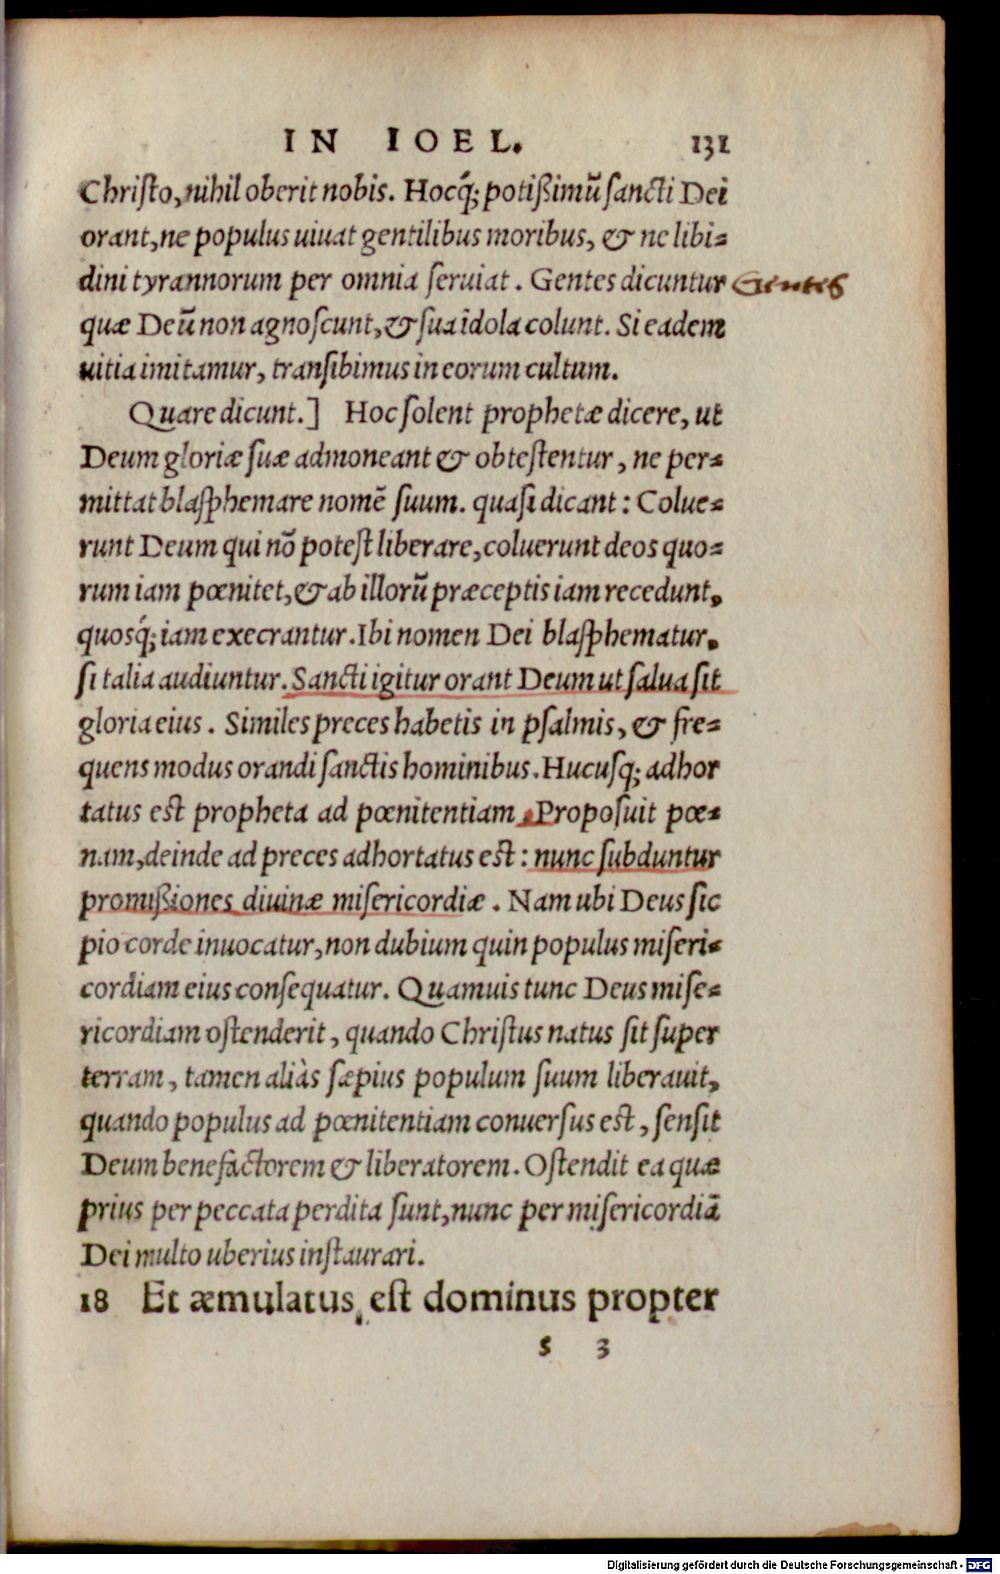 IN IOEL. 131
Christo, nihil oberit nobis. Hocq́; potißimũ sancti Dei
orant, ne populus uiuat gentilibus moribus, & ne libi=
dini tyrannorum per omnia seruiat. Gentes dicuntur Gentes
quæ Deũ non agnoscunt, & sua idola colunt. Si eadem
uitia imitamur, transibimus in eorum cultum.
Quare dicunt.] Hoc solent prophetæ dicere, ut
Deum gloriæ suæ admoneant & obtestentur, ne per=
mittat blasphemare nomẽ suum. quasi dicant: Colue=
runt Deum qui nõ potest liberare, coluerunt deos quo=
rum iam pœnitet, & ab illorũ præceptis iam recedunt,
quosq́; iam execrantur. Ibi nomen Dei blasphematur,
si talia audiuntur. Sancti igitur orant Deum ut salua sit
gloria eius. Similes preces habetis in psalmis, & fre=
quens modus orandi sanctis hominibus. Hucusq; adhor
tatus est propheta ad pœnitentiam. Proposuit pœ=
nam, deinde ad preces adhortatus est: nunc subduntur
promißiones diuinæ misericordiæ. Nam ubi Deus sic
pio corde inuocatur, non dubium quin populus miseri=
cordiam eius consequatur. Quamuis tunc Deus mise=
ricordiam ostenderit, quando Christus natus sit super
terram, tamen aliàs sæpius populum suum liberauit,
quando populus ad pœnitentiam conuersus est, sensit
Deum benefactorem & liberatorem. Ostendit ea quæ
prius per peccata perdita sunt, nunc per misericordiã
Dei multo uberius instaurari.
18 Et æmulatus est dominus propter
s 3
Digitalisierung gefördert durch die Deutsche Forschungsgemeinschaft - DFG